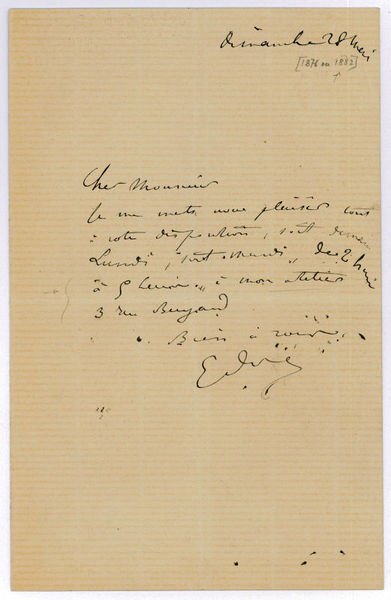 dimanche 28 Mai
[1876 ou 1882]
Cher Monsieur
Je me mets avec plaisir tout
à votre disposition, soit demain
Lundi, soit mardi, de 2 heures
à 5 heures, à mon atelier
3 rue
Bien à vous